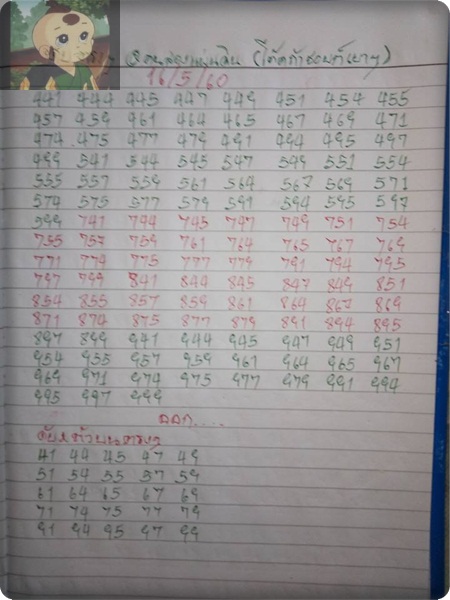 16/5/60
441 444 445 447 449 451 454 455
457 459 461 464 465 467 469 471
474 475 477 479 491 494 495 497
499 541 544 545 547 549 551 554
555 557 559 561 564 567 569 571
574 575 577 579 591 594 595 597
599 741 744 745 747 749 751 754
755 757 759 761 764 765 767 769
771 774 775 777 779 791 794 795
797 799 841 844 845 847 849 851
854 855 857 859 861 864 867 869
871 874 875 877 879 891 894 895
897 899 941 944 945 947 949 951
954 955 957 959 961 964 965 967
969 971 974 975 977 979 991 994
995 997 999
ออก....
41 44 45 47 49
51 54 55 57 59
61 64 65 67 69
71 74 75 77 79
91 94 95 97 99